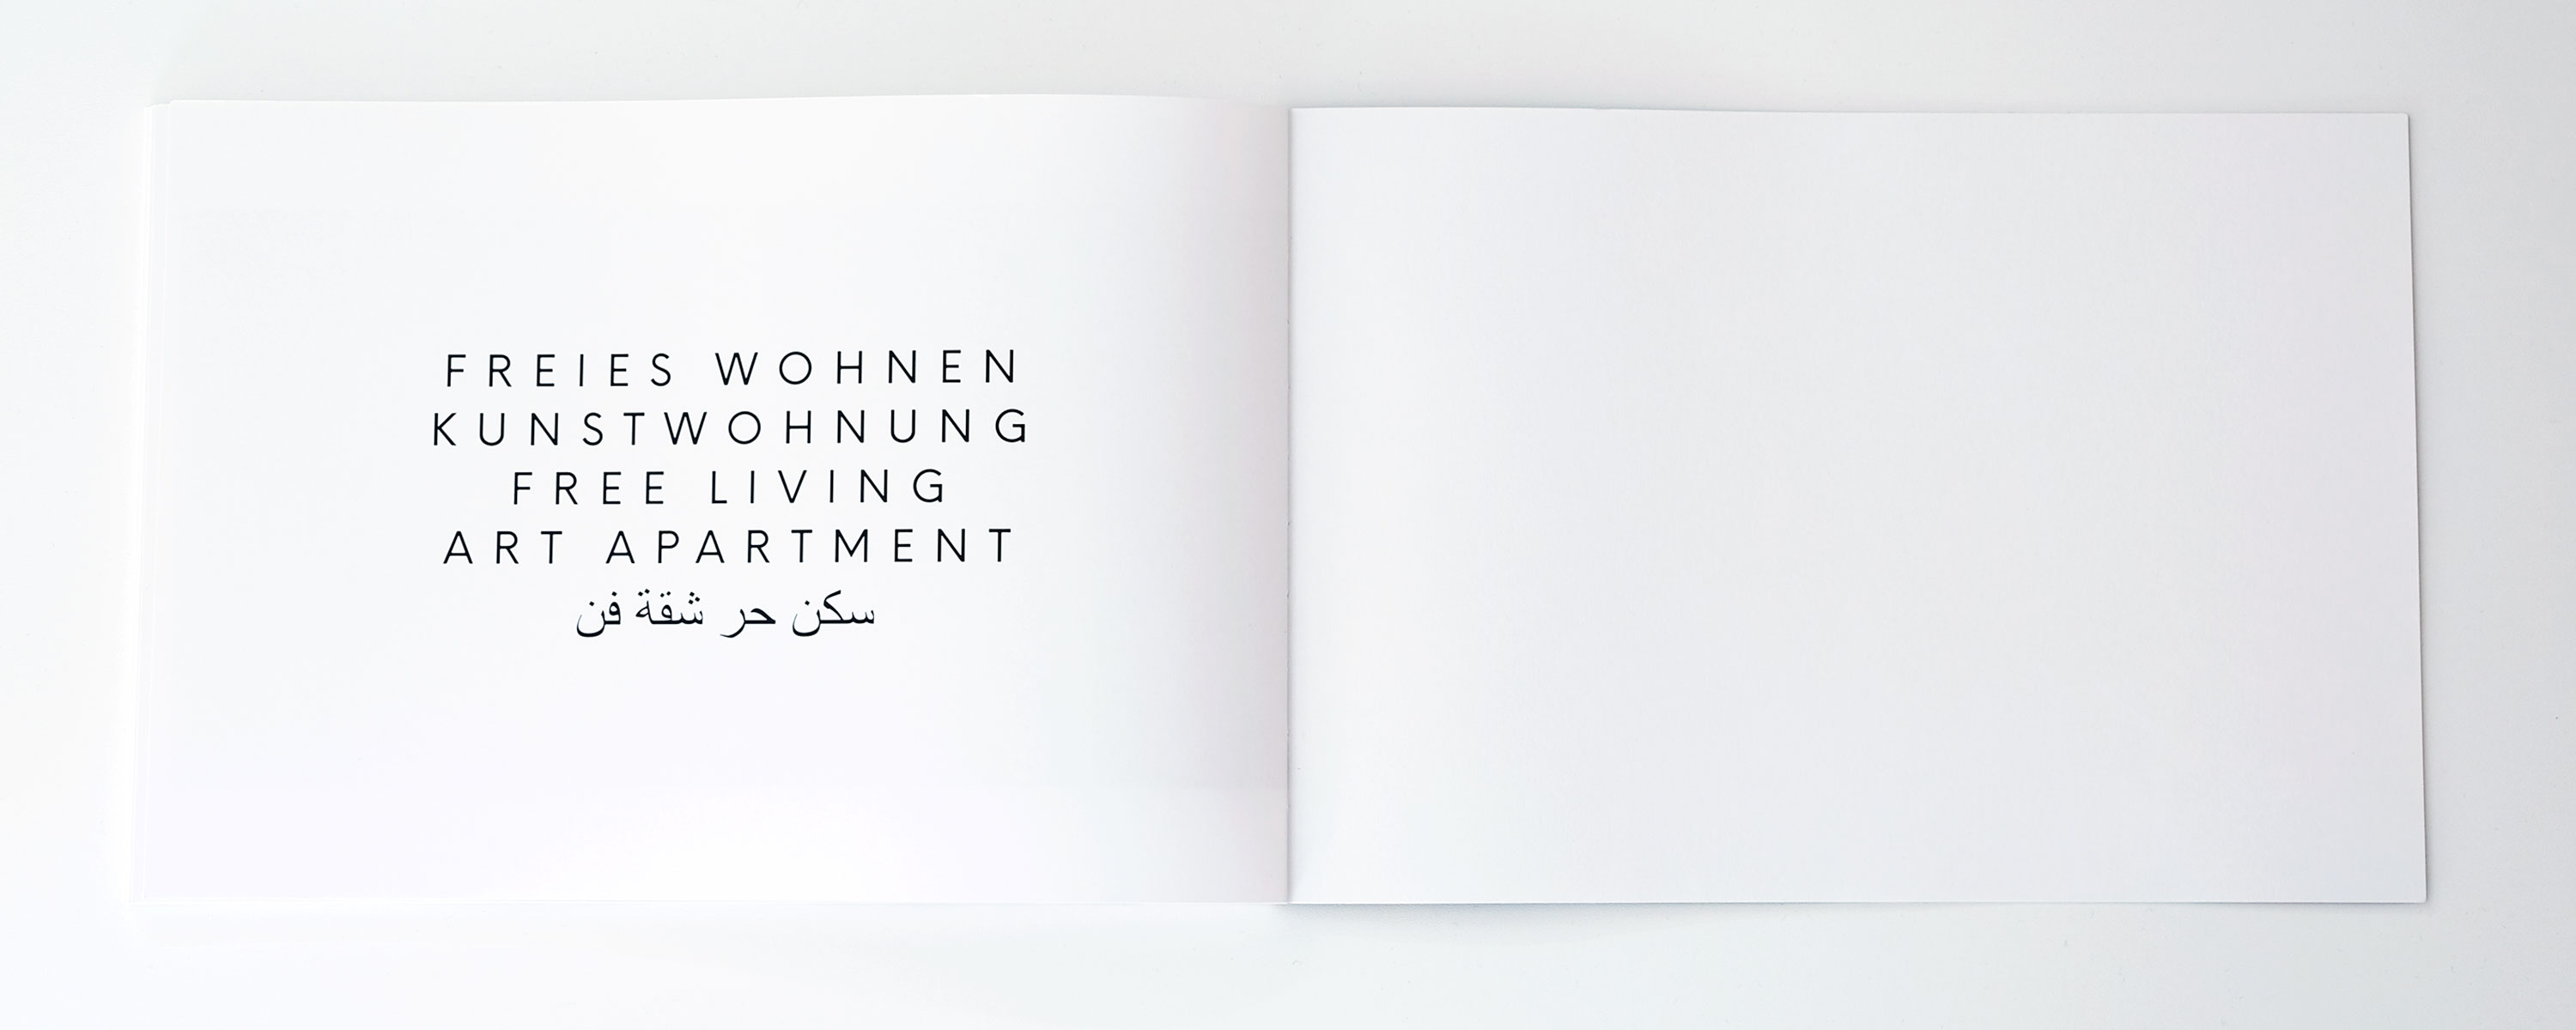 FREIES WOHNEN
KUNSTWOHNUNG
FREE LIVING
ART APARTMENT
سكن حر شقة فن